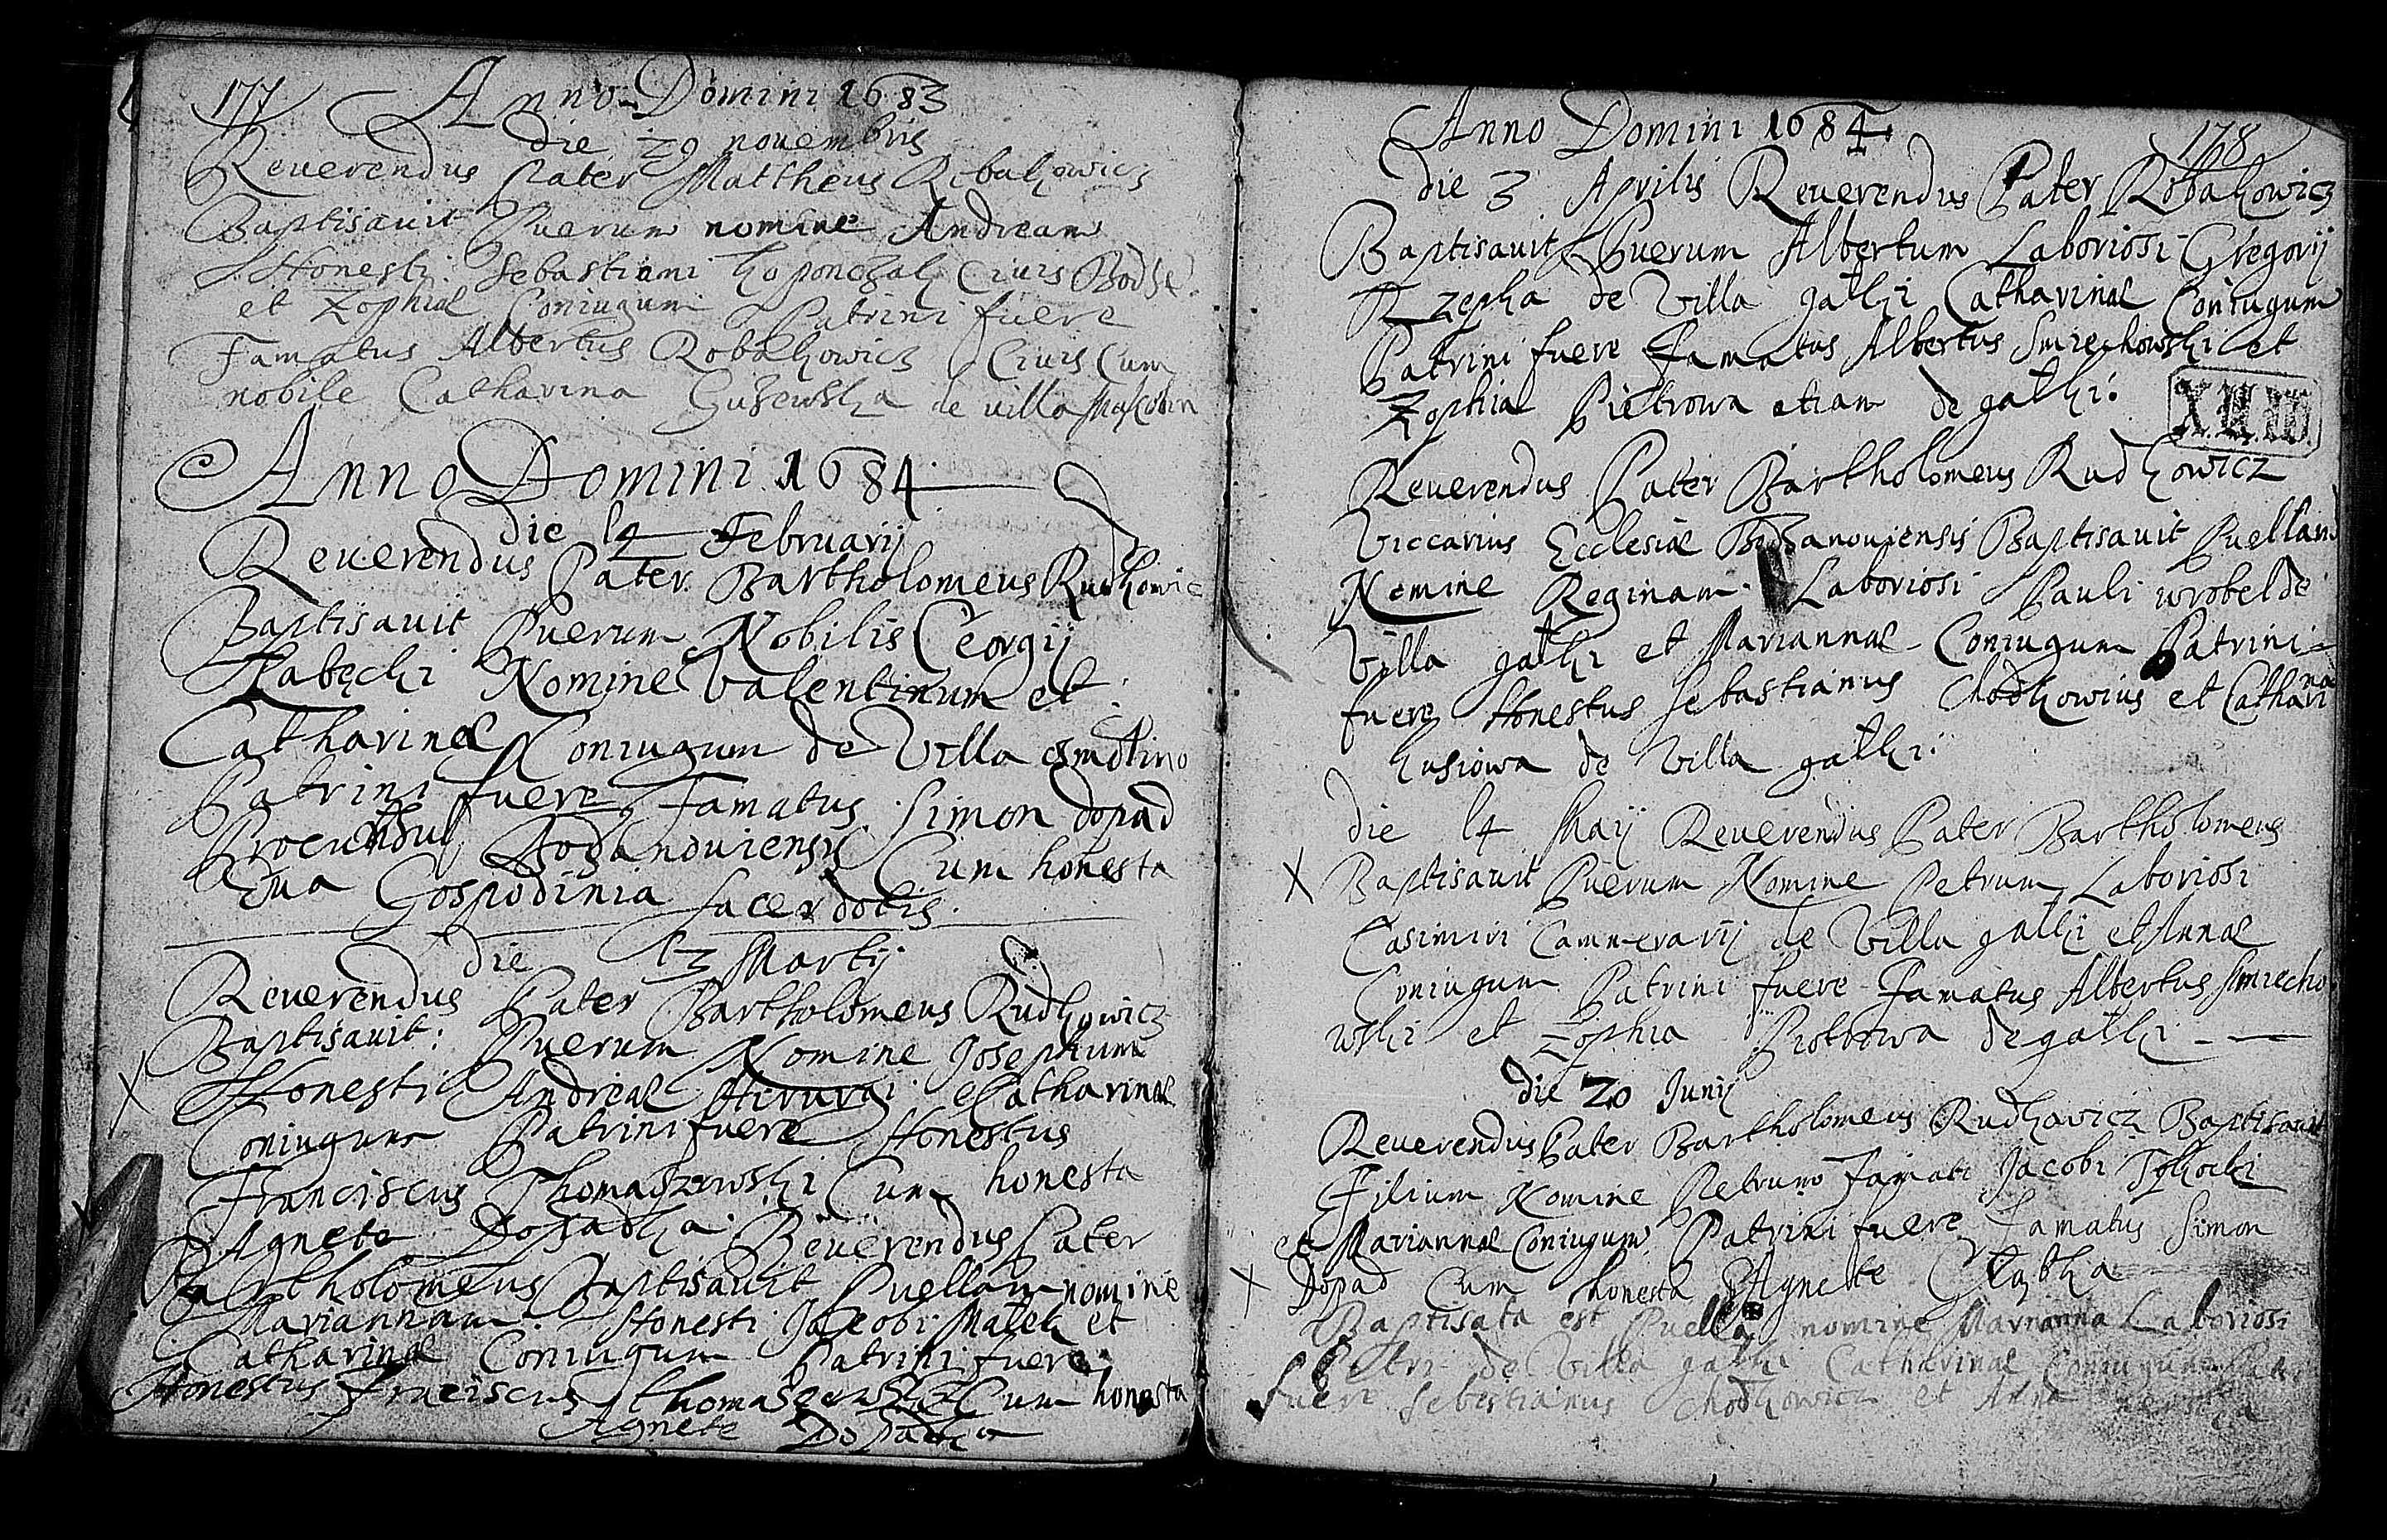 177 Anno Domini 1683
die 29 novembris
Reverendus Pater Mattheus Robakowicz
Baptisavit Puerum nomine Andream
Honesti Sebastiani Civis
et Zophiae Coniugum Patrini fuere
Famatus Albertus Robakowicz Civis Cum
nobile Catharina Guzewska de villa
Anno Domini 1684
die 14 Februarij
Reverendus Pater Bartholomeus Rudkowic
Baptisavit Puerum Nobilis Georgij
Nomine Valentinum et
Catharinae Coniugum de Villa
Patrini fuere Famatus Simon dopad
Cum honesta
Eva Gospodinia sacerdotis
die 13 Martij
Reverendus Pater Bartholomeus Rudkowicz
Baptisavit: Puerum Nomine Josephum
Honesti Andreae Catharinae
Coniugum Patrini fuere Honestus
Franciscus Thomaszewski Cum honesta
Agnete Dopadka Reverendus Pater
Bartholomeus Baptisavit Puellam nomine
Mariannam Honesti Jacobi Malek et
Catharinae Coniugum Patrini fuere
Honestus Franciscus Cum honesta
Agnete Dopadka
Anno Domini 1684 178
die 3 Aprilis Reverendus Pater Robakowicz
Baptisavit Puerum Albertum Laboriosi Gregorij
Rzepka de Villa gatki Catharinae Coniugum
Patrini fuere Famatus Albertus Smiechowski et
Zophia Pietrowa etiam de gatki
Reverendus Pater Bartholomeus Rudkowicz
Viccarius Ecclesiae Baptisavit Puellam
Nomine Reginam Laboriosi Pauli wrobel de
Villa gatki et Mariannae Coniugum Patrini
fuere Honestus Sebastianus Chodkowius et Cathari
na
kusiowa de Villa gatki
die 14 Maij Reverendus Pater Bartholomeus
X Baptisavit Puerum Nomine Petrum Laboriosi
Casimiri Cammerarij de Villa gatki et Annae
Coniugum Patrini fuere Famatus Albertus Smiecho
wski et Zophia Piotrowa de gatki
die 20 Junij
Reverendus Pater Bartholomeus Rudkowicz Baptisavit
Filium Nomine Petrum Famati Jacobi
et Mariannae Coniugum Patrini fuere Famatus Simon
X Dopad Cum honesta Agnete
Baptisata est Puella nomine Marianna Laboriosi
Petri de Villa gatki Catharinae Coniugum
fuere Sebestianus Chodkowicz et Anna